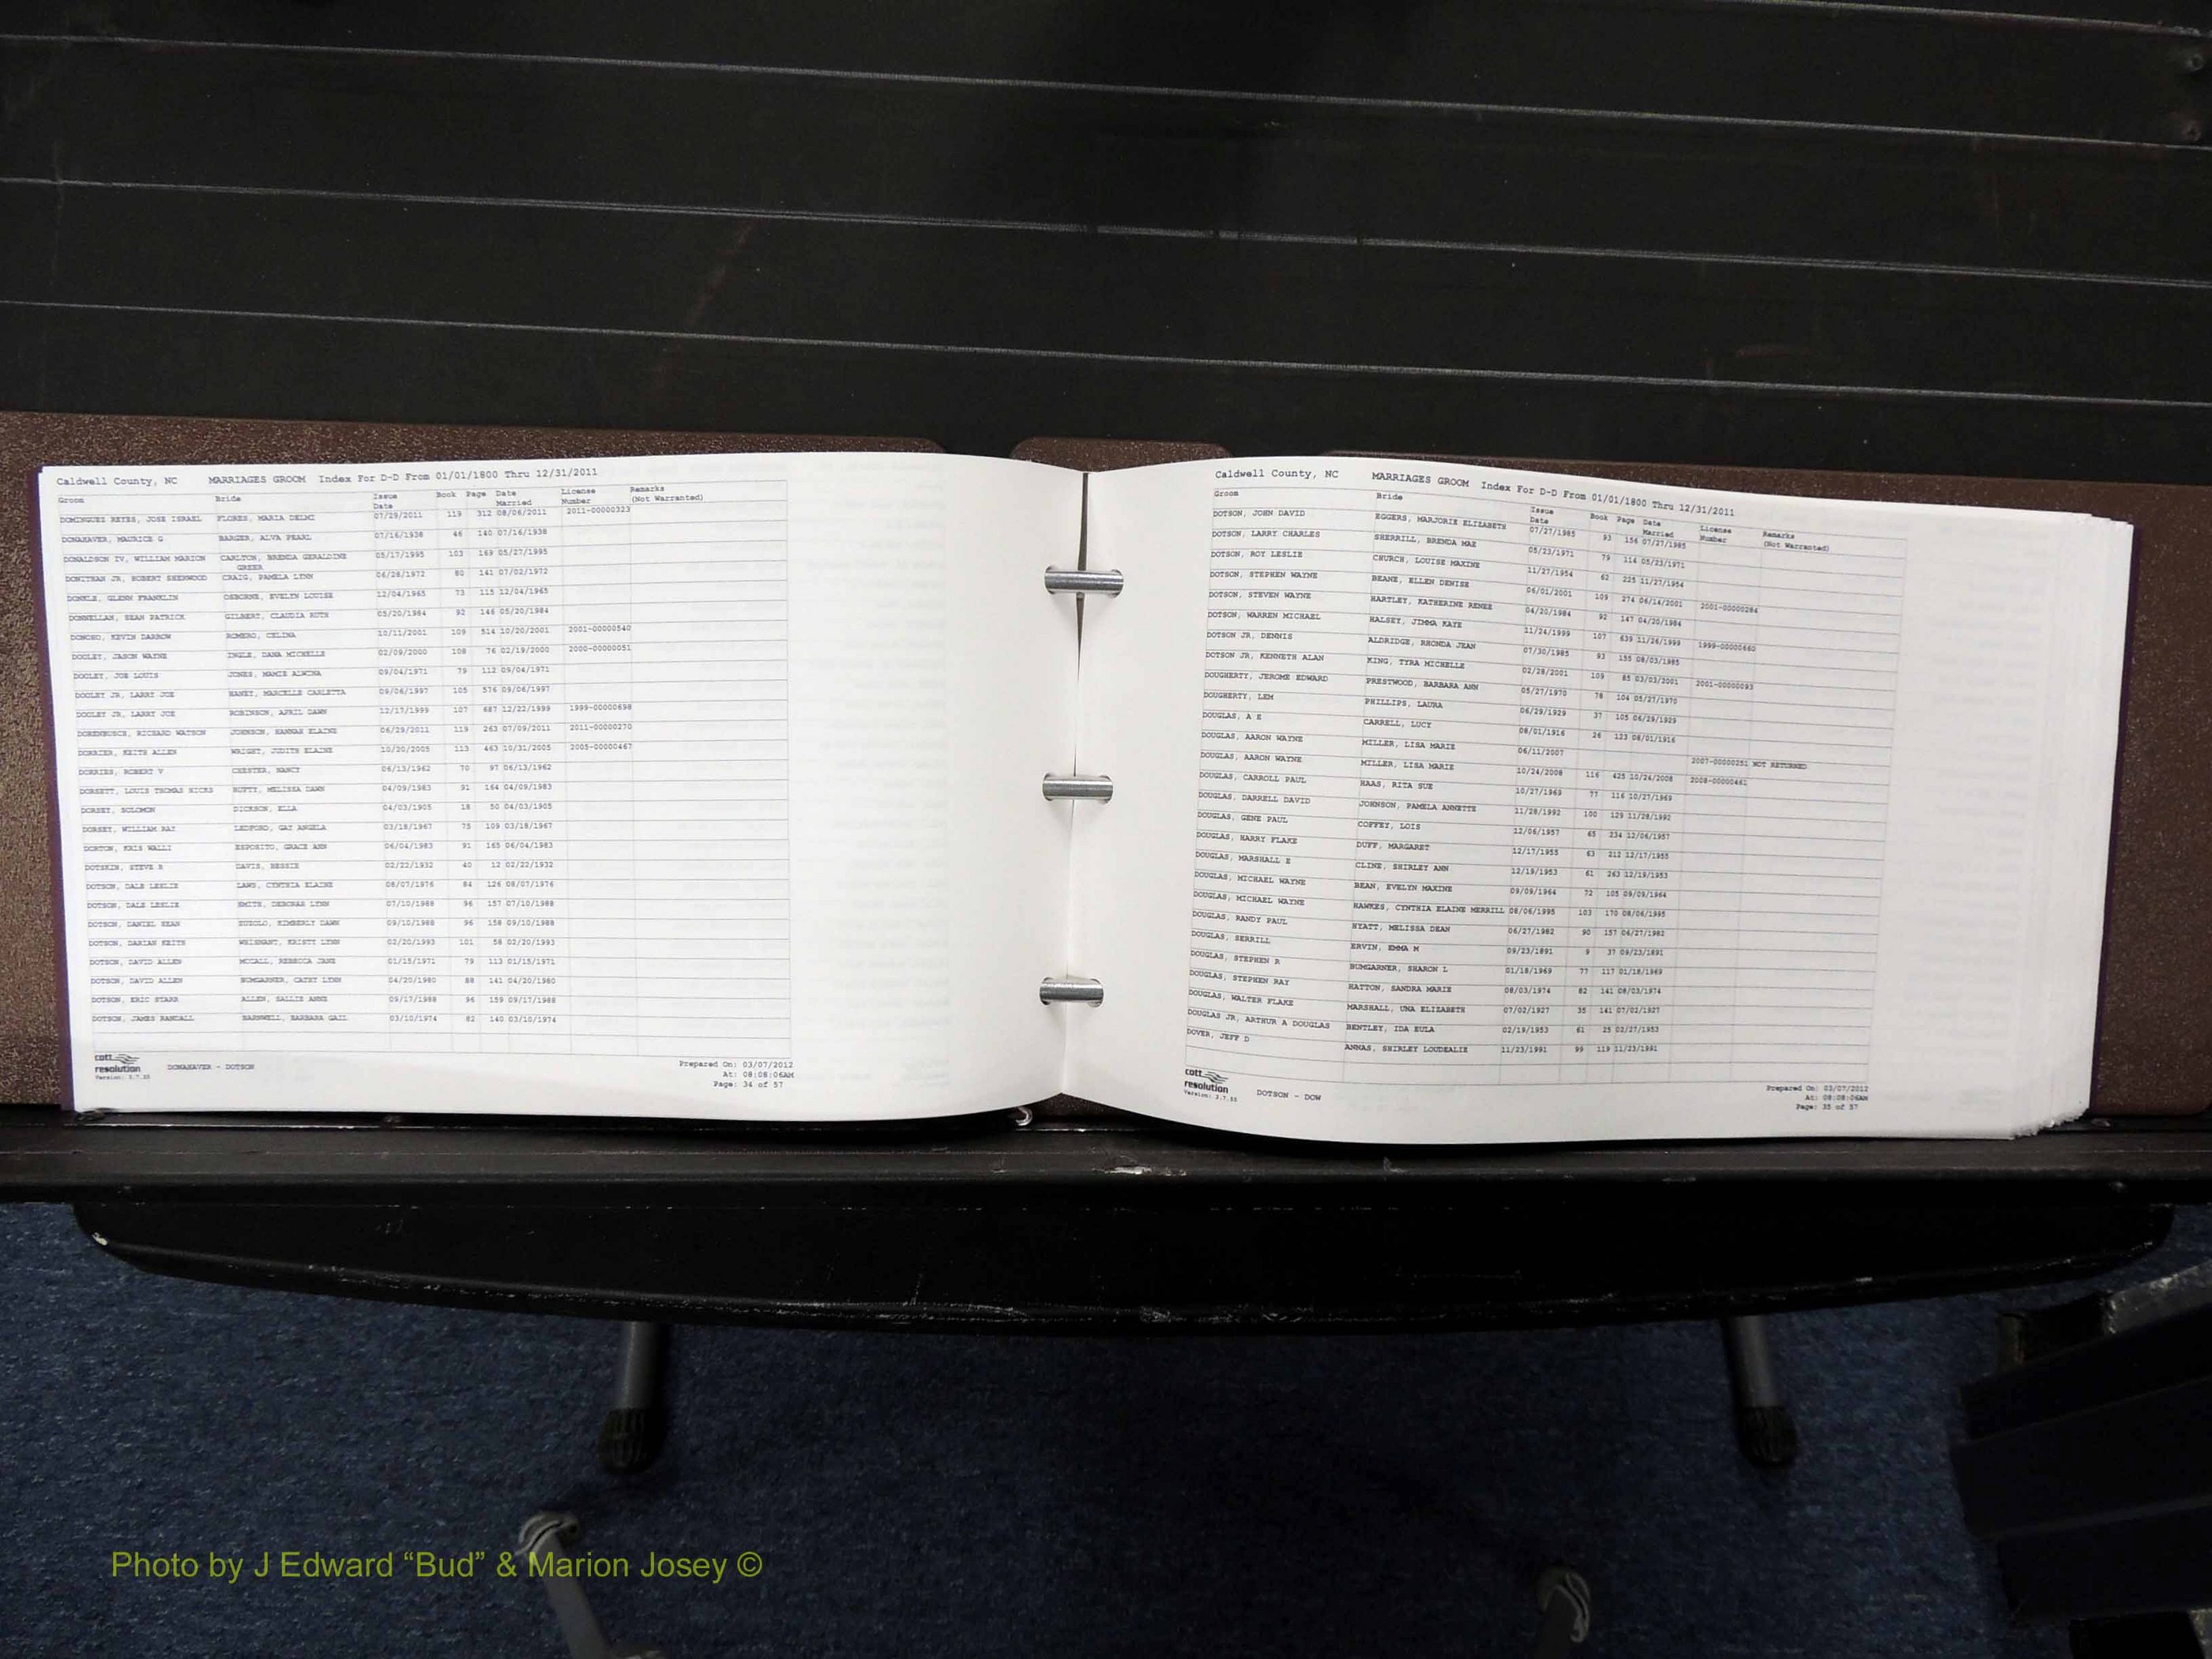 Caldwell County, NC MARRIAGES GROOM Index For D-D From 01/01/1800 Thru 12/31/2011
Groom Bride Issue Date Book Page Date Married License Number Remarks (Not Warranted)
DOMINGUEZ REYES, JOSE ISRAEL FLORES, MARIA DELMI 07/29/2011 119 312 08/06/2011 2011-00000323
DONAHAVER, MAURICE G BARGER, ALVA PEARL 07/16/1938 46 140 07/16/1938
DONALDSON IV, WILLIAM MARION CARLTON, BRENDA GERALDINE 05/17/1995 103 169 05/27/1995
GREER
DONITHAN JR, ROBERT SHERWOOD CRAIG, PAMELA LYNN 06/28/1972 80 141 07/02/1972
DONKLE, GLENN FRANKLIN OSBORNE, EVELYN LOUISE 12/04/1965 73 115 12/04/1965
DONNELLAN, SEAN PATRICK GILBERT, CLAUDIA RUTH 05/20/1984 92 146 05/20/1984
DONOHO, KEVIN DARROW ROMERO, CELINA 10/11/2001 109 514 10/20/2001 2001-00000540
DOOLEY, JASON WAYNE INGLE, DANA MICHELLE 02/09/2000 108 76 02/19/2000 2000-00000051
DOOLEY, JOE LOUIS JONES, MAMIE ALWINA 09/04/1971 79 112 09/04/1971
DOOLEY JR, LARRY JOE HANEY, MARCELLE CARLETTA 09/06/1997 105 576 09/06/1997
DOOLEY JR, LARRY JOE ROBINSON, APRIL DAWN 12/17/1999 107 687 12/22/1999 1999-00000698
DORENBUSCH, RICHARD WATSON JOHNSON, HANNAH ELAINE 06/29/2011 119 263 07/09/2011 2011-00000270
DORRIER, KEITH ALLEN WRIGHT, JUDITH ELAINE 10/20/2005 113 463 10/31/2005 2005-00000467
DORRIES, ROBERT V CHESTER, NANCY 06/13/1962 70 97 06/13/1962
DORSETT, LOUIS THOMAS HICKS HUFTY, MELISSA DAWN 04/09/1983 91 164 04/09/1983
DORSEY, SOLOMON DICKSON, ELLA 04/03/1905 18 50 04/03/1905
DORSEY, WILLIAM RAY LEDFORD, GAY ANGELA 03/18/1967 75 109 03/18/1967
DORTON, KRIS WALLI ESPOSITO, GRACE ANN 06/04/1983 91 165 06/04/1983
DOTSKIN, STEVE R DAVIS, BESSIE 02/22/1932 40 12 02/22/1932
DOTSON, DALE LESLIE LAWS, CYNTHIA ELAINE 08/07/1976 84 126 08/07/1976
DOTSON, DALE LESLIE SMITH, DEBORAH LYNN 07/10/1988 96 157 07/10/1988
DOTSON, DANIEL SEAN KIMBERLY DAWN 09/10/1988 96 158 09/10/1988
DOTSON, DARIAN KEITH WHISNANT, KRISTY LYNN 02/20/1993 101 58 02/20/1993
DOTSON, DAVID ALLEN MCCALL, REBECCA JANE 01/15/1971 79 113 01/15/1971
DOTSON, DAVID ALLEN BUMGARNER, CATHY LYNN 04/20/1980 88 141 04/20/1980
DOTSON, ERIC STARR ALLEN, SALLIE ANNE 09/17/1988 96 159 09/17/1988
DOTSON, JAMES RANDALL BARNWELL, BARBARA GAIL 03/10/1974 82 140 03/10/1974
cott resolution
Version: 3.7.55
DONAHAVER - DOTSON
Prepared On: 03/07/2012
At: 08:08:06AM
Page: 34 of 57
Caldwell County, NC MARRIAGES GROOM Index For D-D From 01/01/1800 Thru 12/31/2011
Groom Bride Issue Date Book Page Date Married License Number Remarks (Not Warranted)
DOTSON, JOHN DAVID EGGERS, MARJORIE ELIZABETH 07/27/1985 93 154 07/27/1985
DOTSON, LARRY CHARLES SHERRILL, BRENDA MAE 05/23/1971 79 114 05/23/1971
DOTSON, ROY LESLIE CHURCH, LOUISE MAXINE 11/27/1954 62 225 11/27/1954
DOTSON, STEPHEN WAYNE BEANE, ELLEN DENISE 06/01/2001 109 274 06/14/2001 2001-00000284
DOTSON, STEVEN WAYNE HARTLEY, KATHERINE RENEE 04/20/1984 92 147 04/20/1984
DOTSON, WARREN MICHAEL HALSEY, JIMMA KAYE 11/24/1999 107 639 11/26/1999 1999-00000660
DOTSON JR, DENNIS ALDRIDGE, RHONDA JEAN 07/30/1985 93 155 08/03/1985
DOTSON JR, KENNETH ALAN KING, TYRA MICHELLE 02/28/2001 109 85 03/03/2001 2001-00000093
DOUGHERTY, JEROME EDWARD PRESTWOOD, BARBARA ANN 05/27/1970 78 104 05/27/1970
DOUGHERTY, LEM PHILLIPS, LAURA 06/29/1929 37 105 06/29/1929
DOUGLAS, A E CARRELL, LUCY 08/01/1916 26 123 08/01/1916
DOUGLAS, AARON WAYNE MILLER, LISA MARIE 06/11/2007 2007-00000251 NOT RETURNED
DOUGLAS, AARON WAYNE MILLER, LISA MARIE 10/24/2008 116 425 10/24/2008 2008-00000461
DOUGLAS, CARROLL PAUL HAAS, RITA SUE 10/27/1969 77 116 10/27/1969
DOUGLAS, DARRELL DAVID JOHNSON, PAMELA ANNETTE 11/28/1992 100 129 11/28/1992
DOUGLAS, GENE PAUL COFFEY, LOIS 12/06/1957 65 234 12/06/1957
DOUGLAS, HARRY FLAKE DUFF, MARGARET 12/17/1955 63 212 12/17/1955
DOUGLAS, MARSHALL E CLINE, SHIRLEY ANN 12/19/1953 61 263 12/19/1953
DOUGLAS, MICHAEL WAYNE BEAN, EVELYN MAXINE 09/09/1964 72 105 09/09/1964
DOUGLAS, MICHAEL WAYNE HAWKES, CYNTHIA ELAINE MERRILL 08/06/1995 103 170 08/06/1995
DOUGLAS, RANDY PAUL HYATT, MELISSA DEAN 06/27/1982 90 157 06/27/1982
DOUGLAS, SERRILL ERVIN, EMMA M 09/23/1891 9 37 09/23/1891
DOUGLAS, STEPHEN R BUMGARNER, SHARON L 01/18/1969 77 117 01/18/1969
DOUGLAS, STEPHEN RAY HATTON, SANDRA MARIE 08/03/1974 82 141 08/03/1974
DOUGLAS, WALTER FLAKE MARSHALL, UNA ELIZABETH 07/02/1927 35 141 07/02/1927
DOUGLAS JR, ARTHUR A DOUGLAS BENTLEY, IDA EULA 02/19/1953 61 25 02/27/1953
DOVER, JEFF D ANNAS, SHIRLEY LOUDEALIE 11/23/1991 99 119 11/23/1991
cott resolution
Version: 3.7.55
DOTSON - DOW
Prepared On: 03/07/2012
At: 08:08:06AM
Page: 35 of 57
Photo by J Edward “Bud” & Marion Josey ©